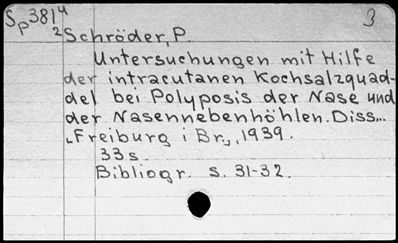 Sp3814 3
2Schröder, P.
Untersuchungen mit Hilfe
der intracutanen Kochsalzquad-
del bei Polyposis der Nase und
der Nasennebenhöhlen. Diss...
Freiburg i Br., 1939.
33 s.
Bibliogr. s. 31-32.